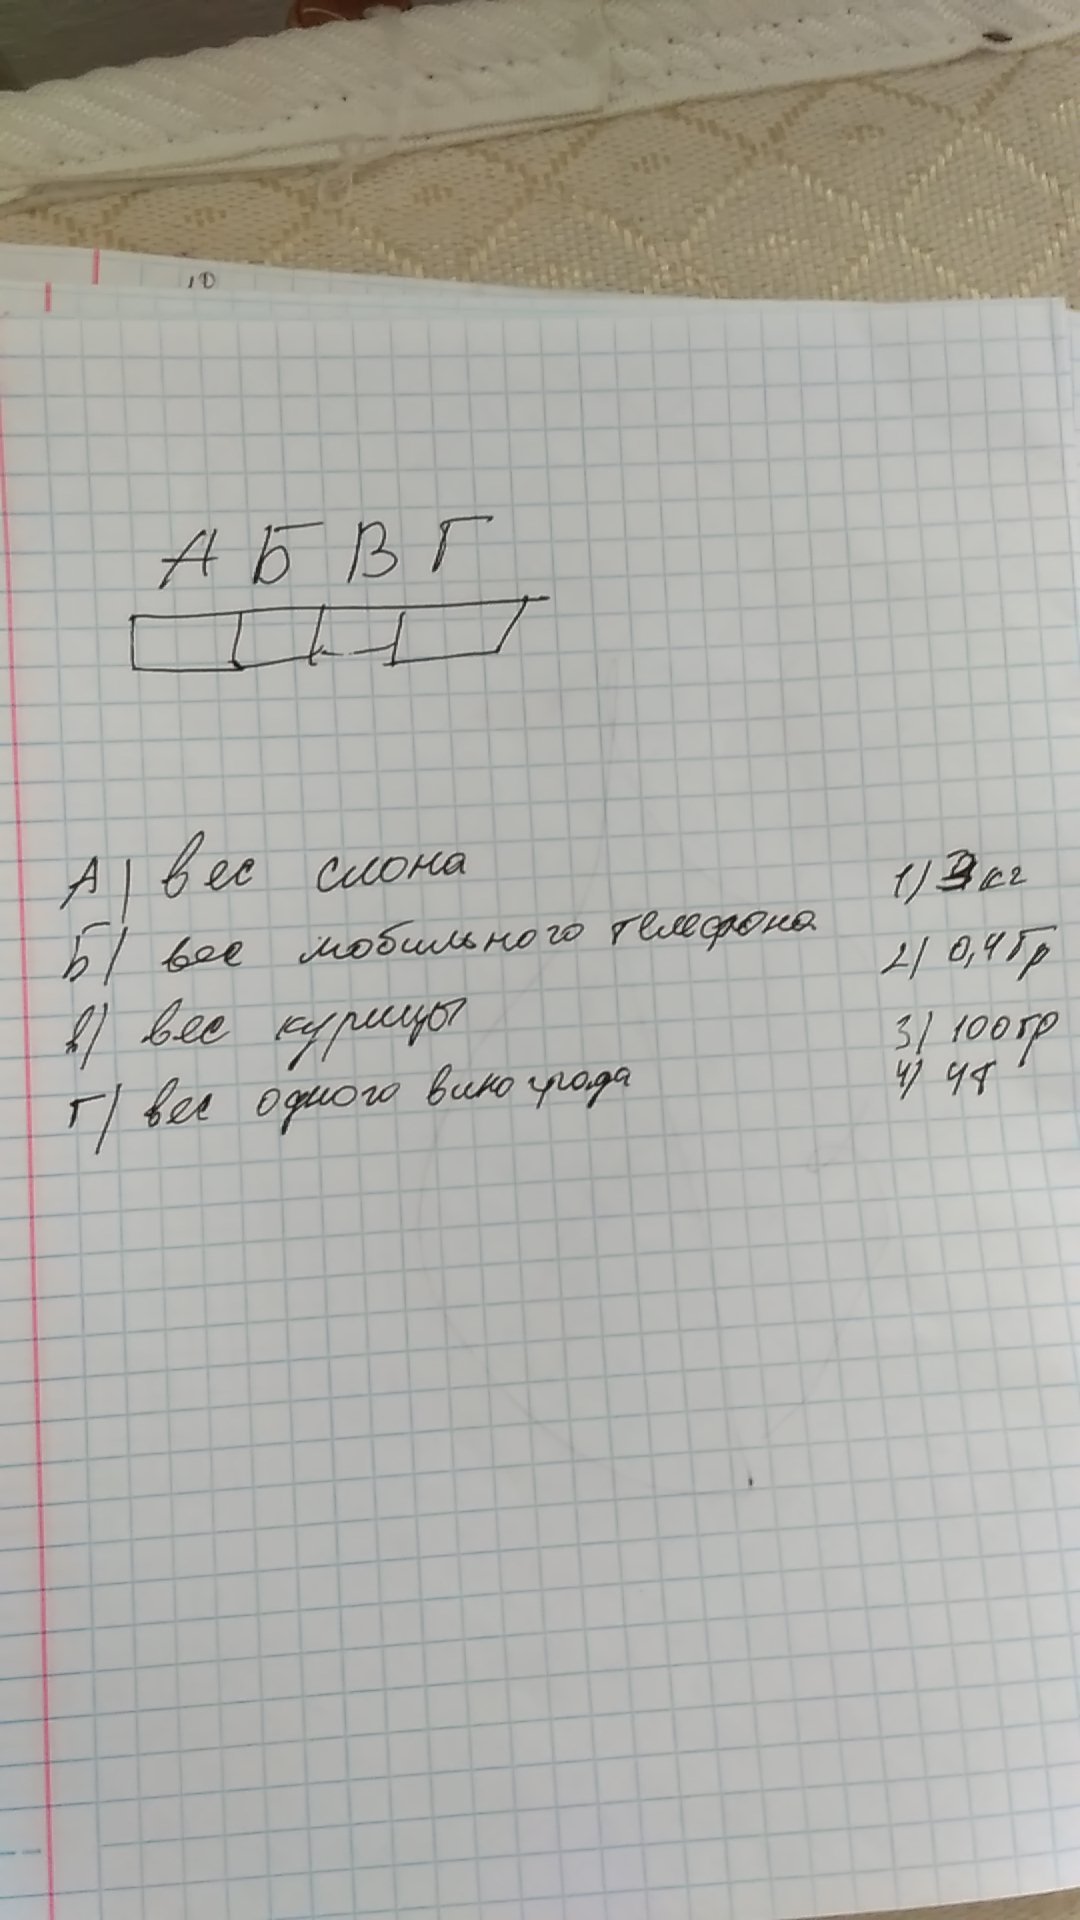 10
А Б В Г
А) вес слона 1) 3 кг
Б) вес мобильного телефона 2) 0,4 Гр
в) вес курицы 3) 100 гр
г) вес одного винограда 4) 4т